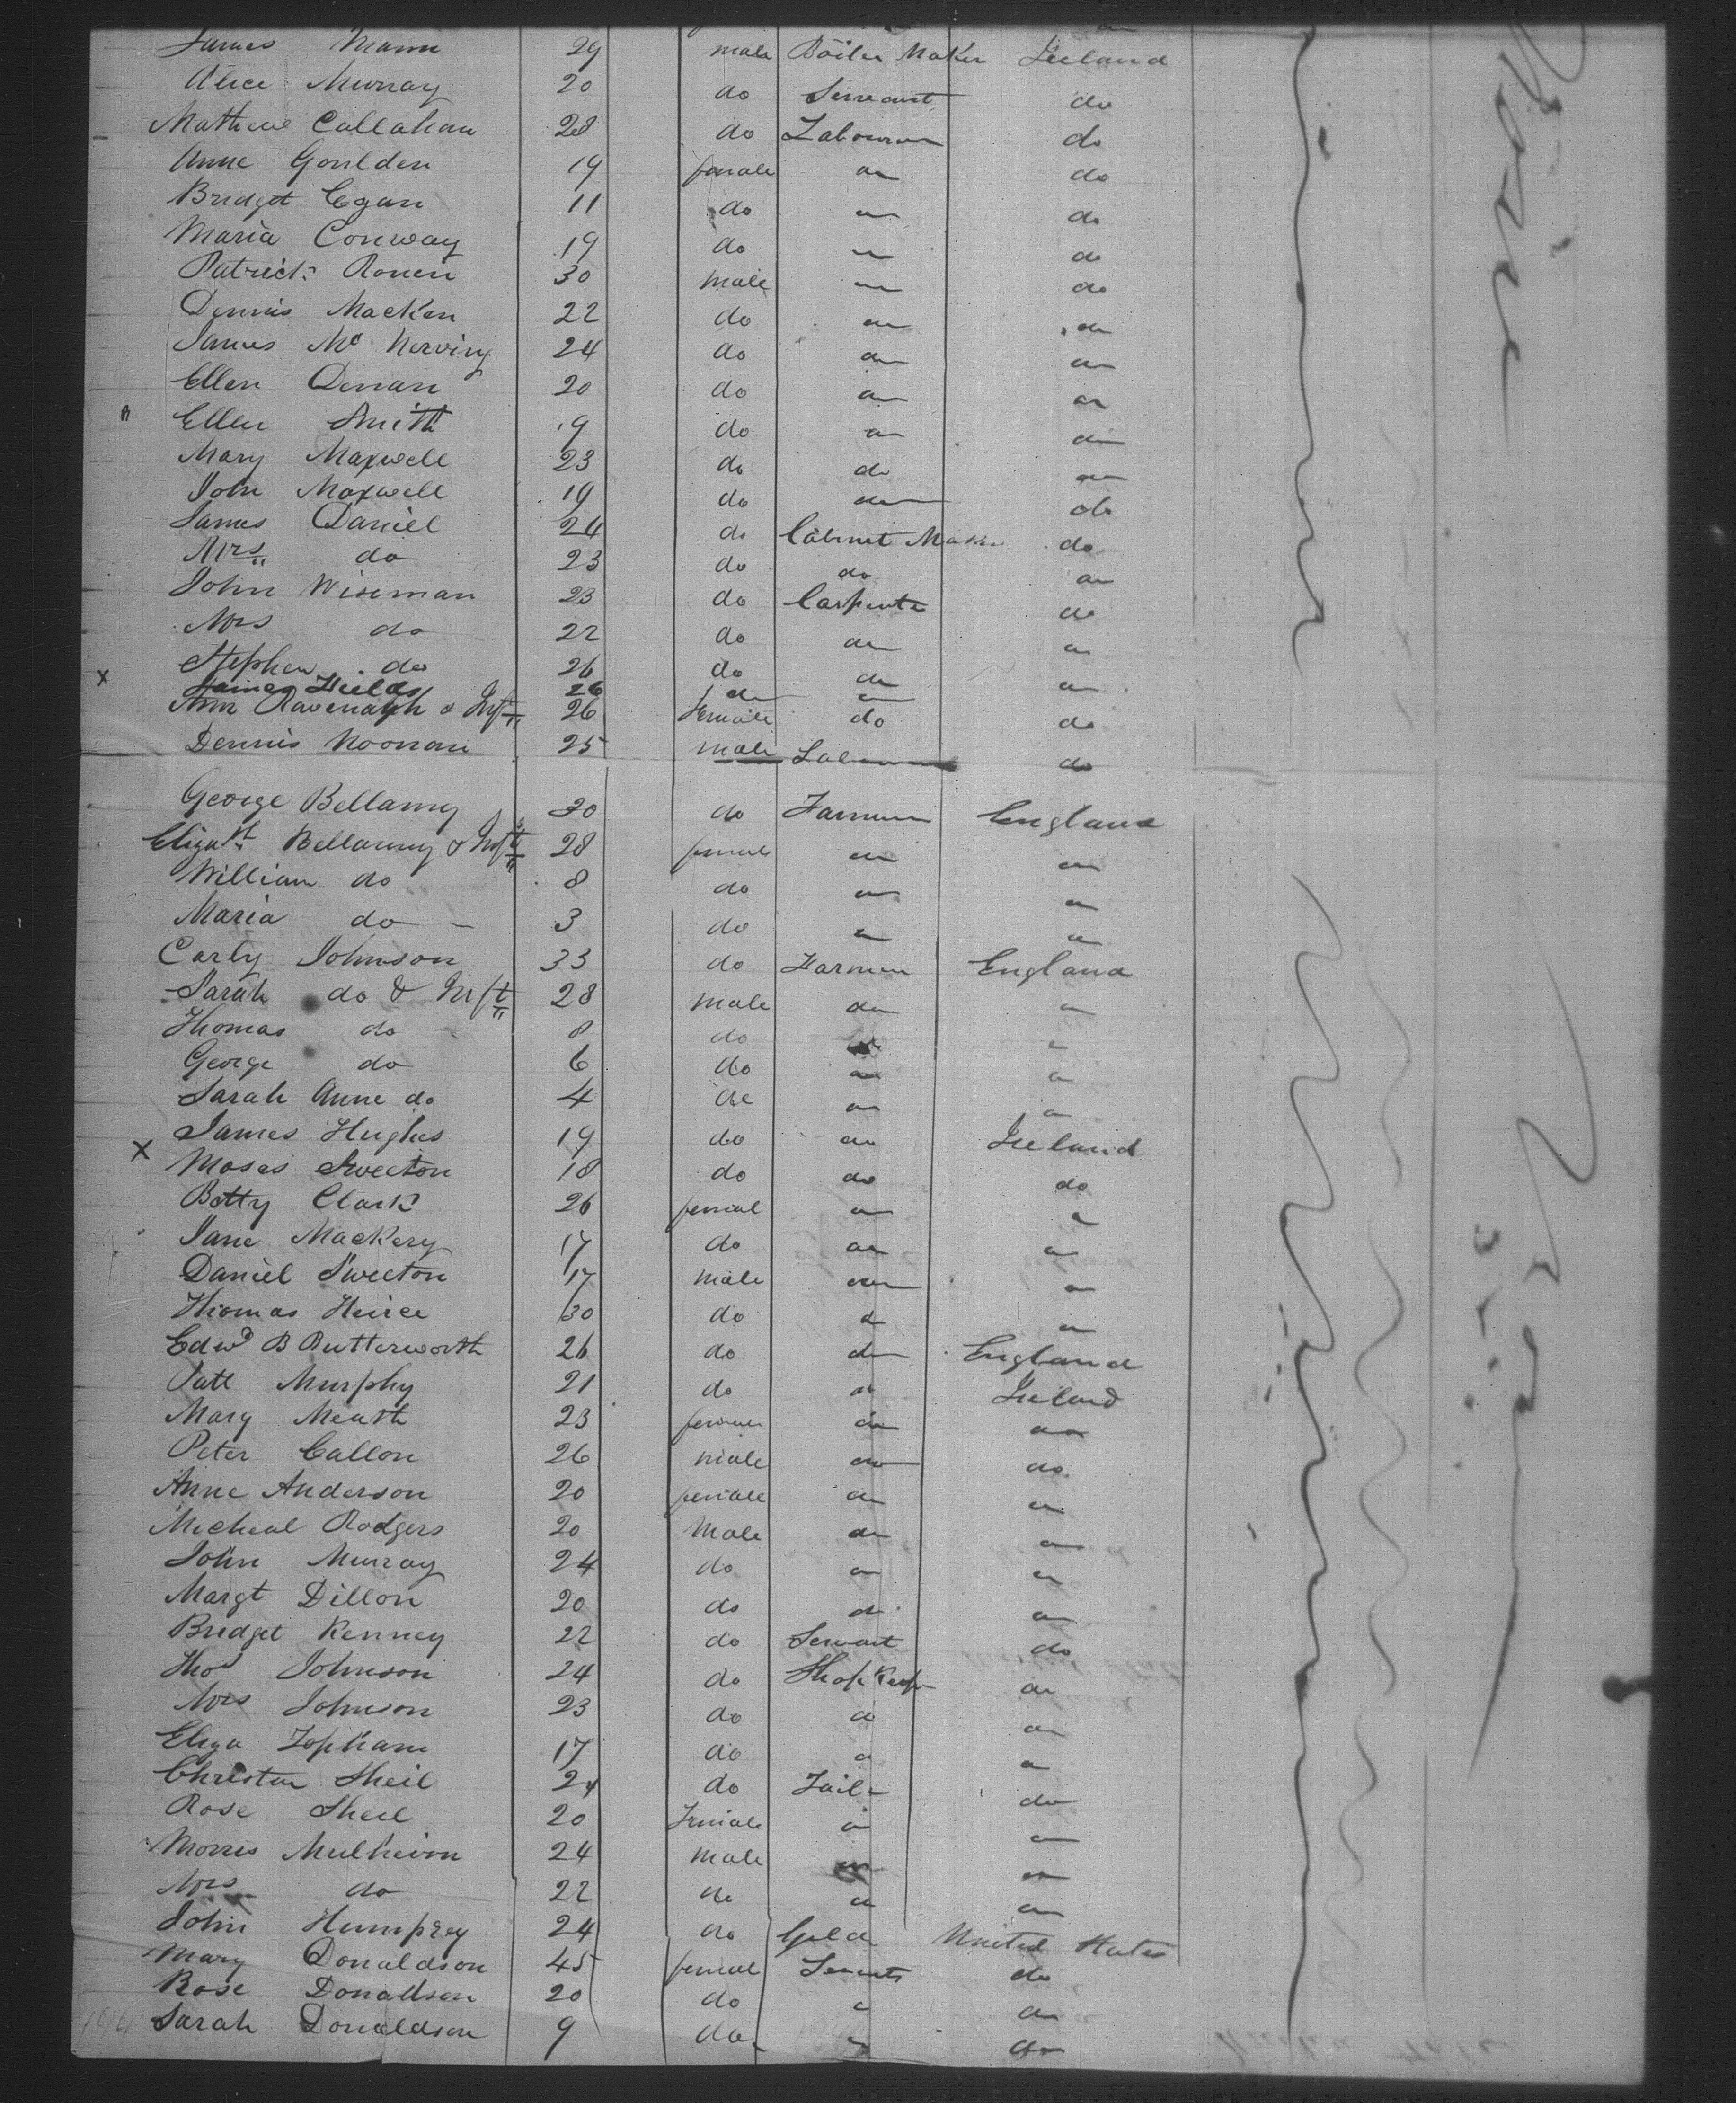 James Mann 29 male Boiler Maker Ireland
Alice Murray 20 do Servant do
Mathew Callahan 28 do Labourer do
Anne Goulden 19 female do do
Bridget Egan 11 do do do
Maria Conway 19 do do do
Patrick Ronen 30 male do do
Dennis Macken 22 do do do
James Mc Nerviny 24 do do do
Ellen Dinan 20 do do do
Ellen Smith 19 do do do
Mary Maxwell 23 do do do
John Maxwell 19 do do do
James Daniel 24 do Cabinet Maker do
Mrs do 23 do do do
John Wiseman 23 do Carpenter do
Mrs do 22 do do do
x Stephen do 26 do do do
James Fields 26 do do
Ann Kavenagh & Inft 26 Female do do
Dennis Noonan 25 male Labourer do
George Bellamy 30 do Farmer England
Elizat Bellamy & Inft 28 female do do
William do 8 do do do
Maria do 3 do do do
Carly Johnson 33 do Farmer England
Sarah do & Inft 28 male do do
Thomas do 8 do do do
George do 6 do do do
Sarah Anne do 4 do do do
James Hughes 19 do do Ireland
x Moses Sweeton 18 do do do
Betty Clark 26 femal do do
Jane Mackery 17 do do do
Daniel Sweeton 17 male do do
Thomas Heirce 30 do do do
Edwd B Butterworth 26 do do England
Patt Murphy 21 do do Ireland
Mary Meath 23 female do do
Peter Callon 26 male do do
Anne Anderson 20 female do do
Micheal Rodgers 20 Male do do
John Murray 24 do do do
Margt Dillon 20 do do do
Bridget Kenney 22 do Servant do
Thos Johnson 24 do Shop Keep do
Mrs Johnson 23 do do do
Eliza Topham 17 do do do
Christon Sheil 24 do Tailr do
Rose Sheil 20 Female do do
Morris Mulheirn 24 male do do
Mrs do 22 do do do
John Humprey 24 do United States
Mary Donaldson 45 femal Servts do
Rose Donaldson 20 do do do
Sarah Donaldson 9 do do do